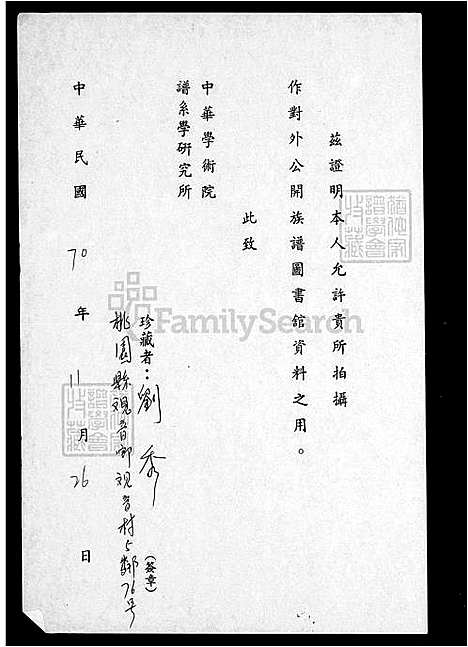 茲證明本人允許貴所拍攝
作對外公開族譜圖書館資料之用。
此致
中華學術院
譜系學研究所
珍藏者:劉秀
(簽章)
桃園縣观音鄉观音村5鄰76号
中華民國70年11月26日
FamilySearch